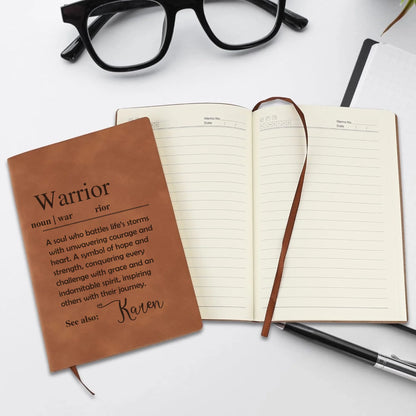 Warrior
noun | war rior
A soul who battles life's storms
with unwavering courage and
heart. A symbol of hope and
strength, conquering every
challenge with grace and an
indomitable spirit, inspiring
others with their journey.
See also: Karen
Memo No.
Date / /
Memo No.
Date / /